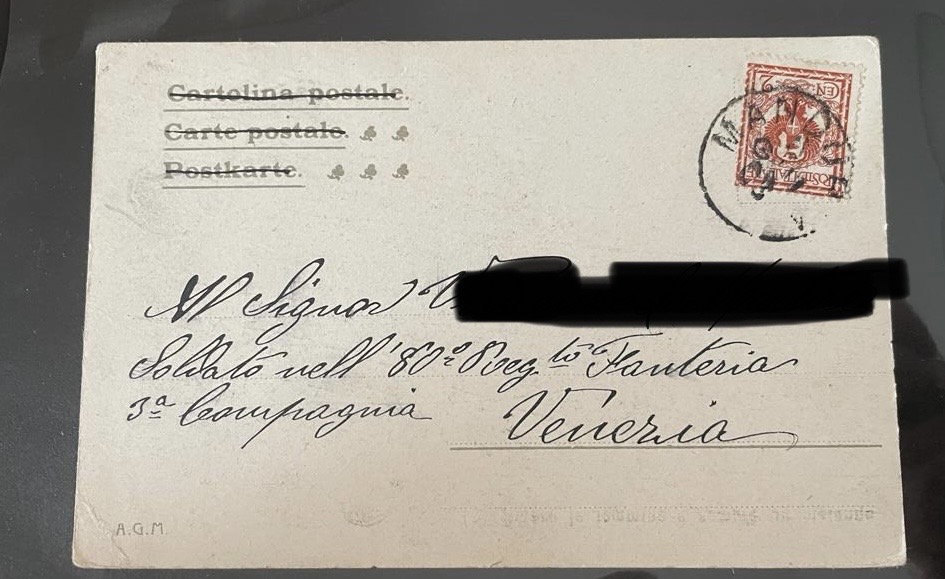 Cartolina postale.
Carte postale.
Postkarte.
MAN
Al Signor V
Soldato nell'80º Regto Fanteria
3ª Compagnia Venezia
A.G.M.